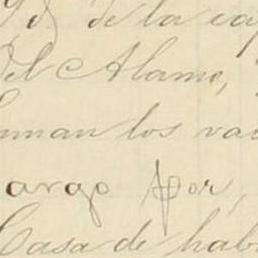 de la cap
del Alamo,
man los va
argo por,
Casa de hab